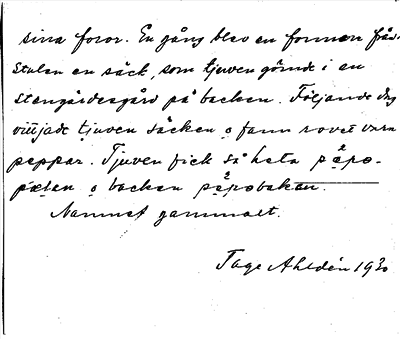 sina foror. En gång blev en forman från-
stulen en säck, som tjuven gömde i en
stengärdesgård på backen. Följande dag
vittjade tjuven säcken o fann rovet vara
peppar. Tjuven fick så heta
o backen
Namnet gammalt.
Tage Ahldén 1930